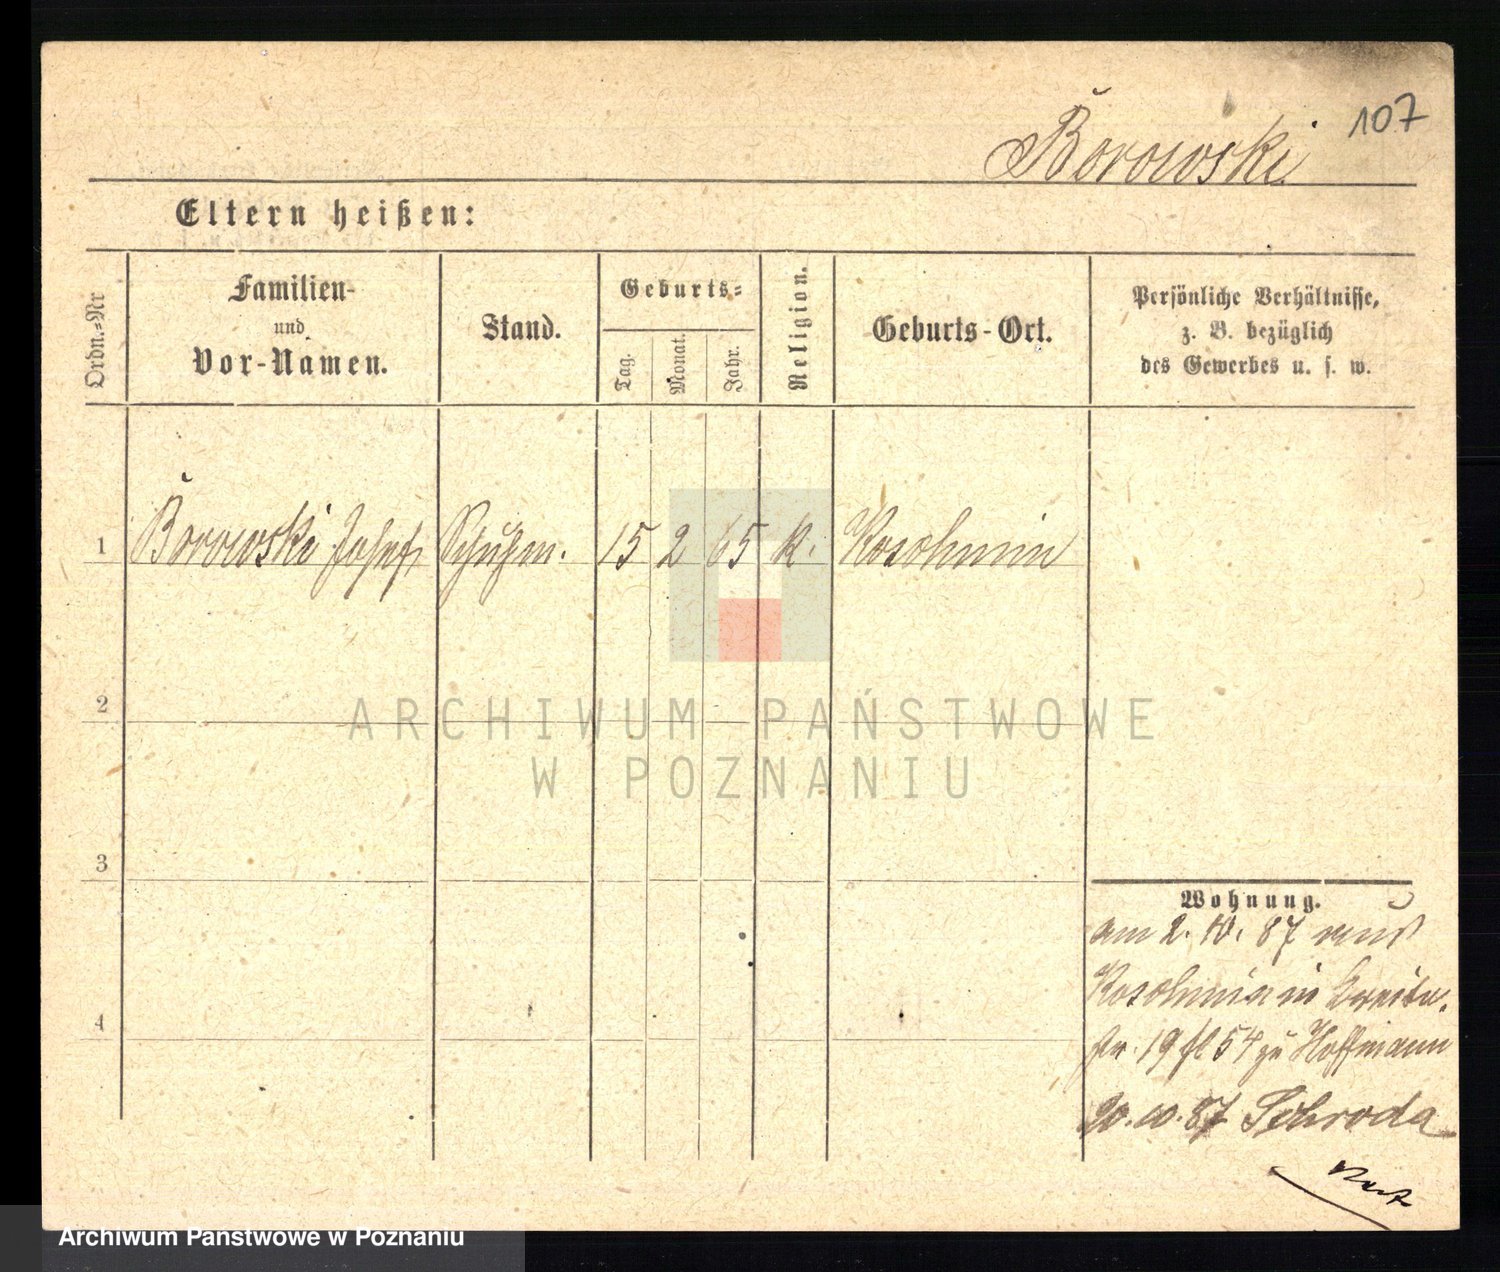 107
Borowski
Eltern heißen:
Ordn.-Nr
Familien-
und
Vor-Namen.
Stand.
Geburts-
Tag.
Monat.
Jahr.
Religion.
Geburts-Ort.
Persönliche Verhältnisse,
z. B. bezüglich
des Gewerbes u. s. w.
1 Borowski Josef 15 2 65 k. Koschmin
2
3
4
Wohnung.
am 2. 10. 87 aus
Koschmin in Breite-
str. 19 54 zu Hoffmann
20.10.87 Schroda
ARCHIWUM PAŃSTWOWE
W POZNANIU
Archiwum Państwowe w Poznaniu